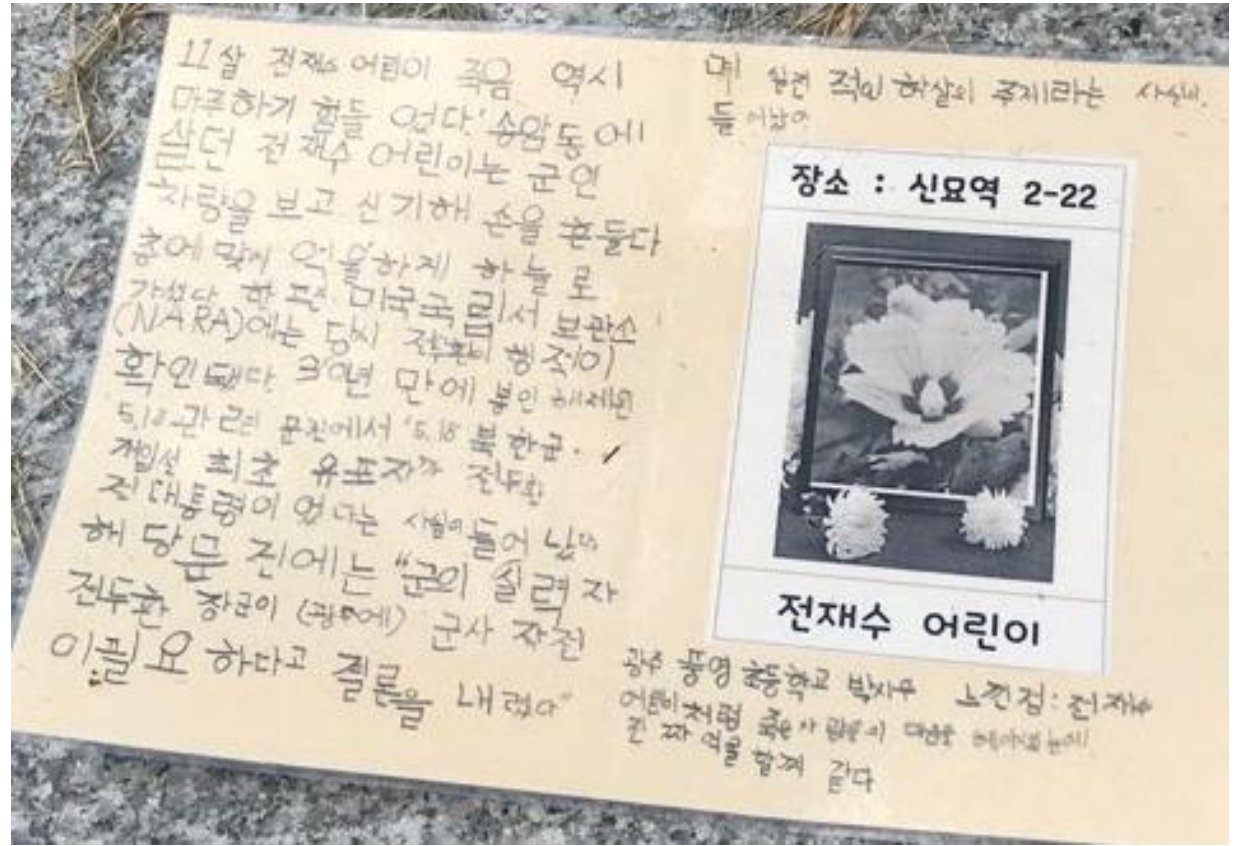 11살 전재수 어린이 죽음 역시
마주하기 힘들 었다. 송암동에
살던 전재수 어린이는 군인
차량을 보고 신기해 손을 흔들다
총에 맞서 억울하게 하늘로
갔었다. 한편 미국국립서 보관소
(NARA)에는 당시 전두환 행적이
확인됐다. 30년 만에 봉인 해제된
5.18 관련 문건에서 '5.18 북한군.
개입설 최초 유포자가 전두환
전대통령이 었다는 사실이 들어 났다.
해당문 건에는 "군의 실력자
전두환 장군이 (광주에) 군사 작전
이 필요 하다고 결론을 내렸다"
적인 학살의 주제라는 사실이.
들 어났다
장소 : 신묘역 2-22
전재수 어린이
광주 풍영 초등학교 느낀점: 전재수
어린이 처럼 죽은 사람들의 마음을
진 짜 억울 할꺼 같다